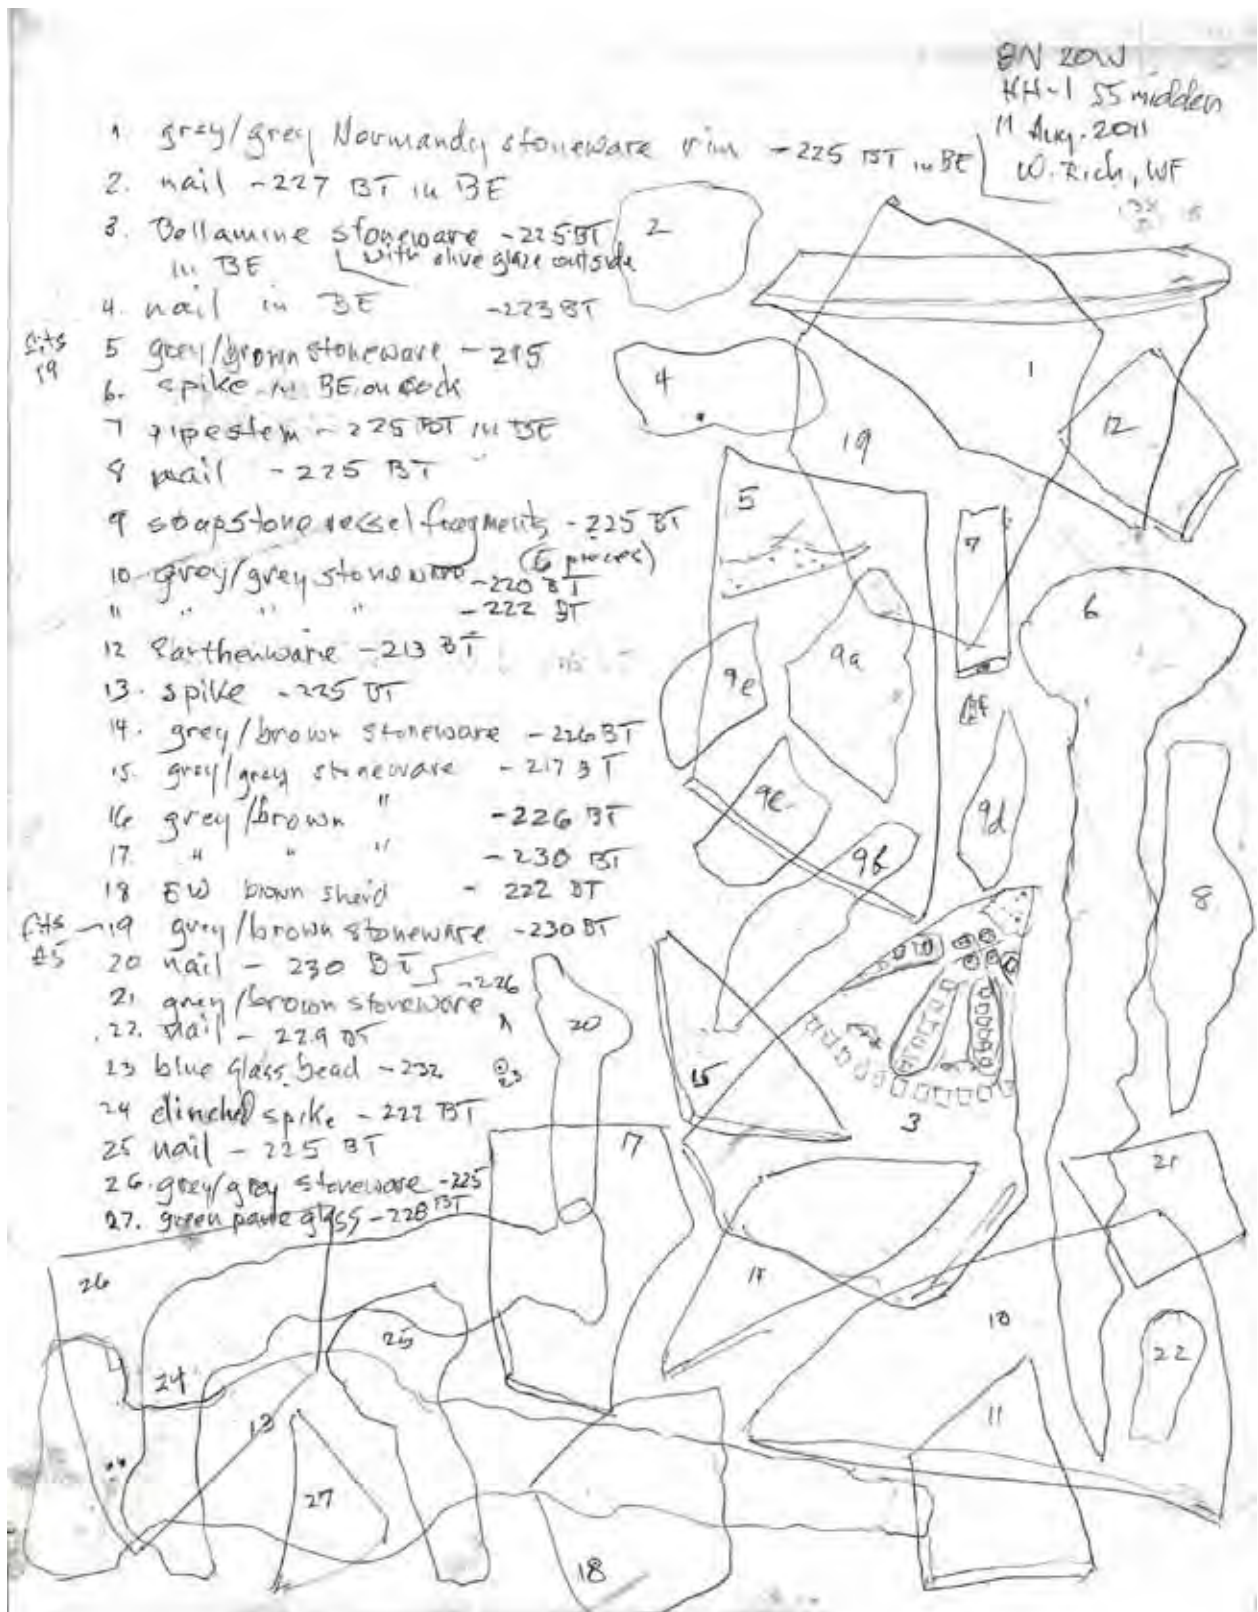 8N 20W
HH-1 S5 midden
11 Aug. 2011
W. Rich, WF
1 gray/grey Normandy stoneware rim -225 BT in BE
2. nail -227 BT in BE
3. Bellamine stoneware -225 BT
in BE with olive glaze outside
4. nail in BE -223 BT
fits 19
5 grey/brown stoneware - 215
6. spike in BE on rock
7 pipestem - 225 BT in BE
8 nail - 225 BT
9 soapstone vessel fragments - 225 BT
(6 pieces)
10 grey/grey stoneware -220 BT
11 " " " -222 BT
12 Earthenware -213 BT
13. spike -225 BT
14. grey/brown stoneware -226 BT
15. grey/grey stoneware -217 BT
16 grey/brown " -226 BT
17. " " " -230 BT
18 EW brown sherd - 222 BT
fits #5
19 grey/brown stoneware -230 BT
20 nail - 230 BT
21 grey/brown stoneware -226
22. nail - 229 BT
23 blue glass bead -232
24 clinched spike -222 BT
25 nail - 225 BT
26. grey/grey stoneware -225
27. green pane glass -228 BT
2
1
4
12
19
5
7
6
9a
9e
9d
9c
9b
8
20
23
15
3
17
21
26
10
25
22
24
11
13
27
18